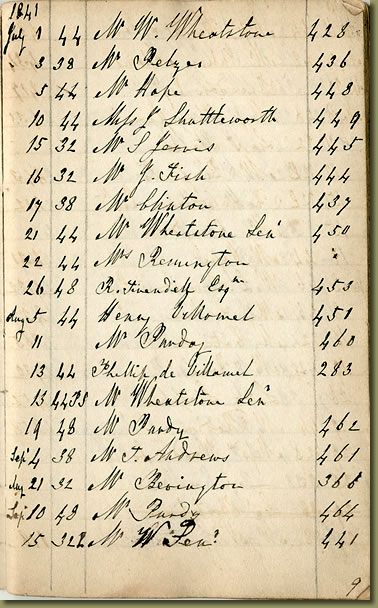 1841
July 1 44 Mr W. Wheatstone 428
" 3 38 Mr Pelzer 436
5 44 Mr Hope 448
10 44 Miss J Shuttleworth 449
15 32 Mr S Jervis 445
16 32 Mr J. Fish 444
17 38 Mr Clinton 437
21 44 Mr Wheatstone Senr 450
22 44 Mrs Remington
26 48 R. Esqre 453
Aug 5 44 Henry Villomet 451
11 Mr Purdy 460
13 44 Phillip de Villamet 283
13 44 Mr Wheatstone Senr
19 48 Mr Purdy 462
Sep 4 38 Mr T. Andrews 461
Aug 21 32 Mr Bevington 368
Sep 10 48 Mr Purdy 464
15 32 Mr W Senr 441
9